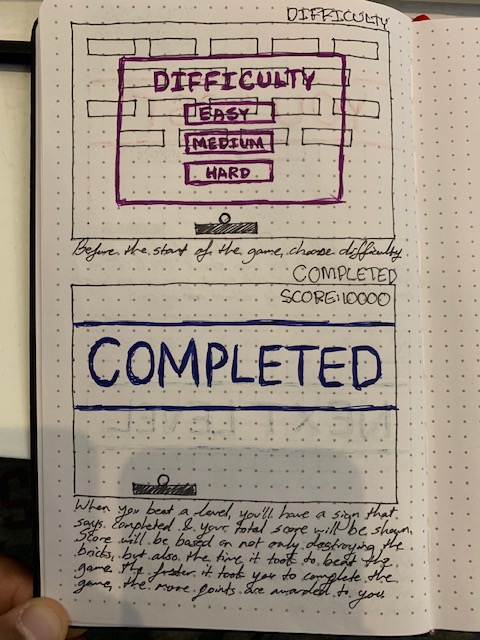 DIFFICULTY
DIFFICULTY
EASY
MEDIUM
HARD
Before the start of the game, choose difficulty
COMPLETED
SCORE:10000
COMPLETED
NEXT LEVEL
When you beat a level, you'll have a sign that
says completed & your total score will be shown.
Score will be based on not only destroying the
bricks, but also the time it took to beat the
game. The faster it took you to complete the
game, the more points are awarded to you